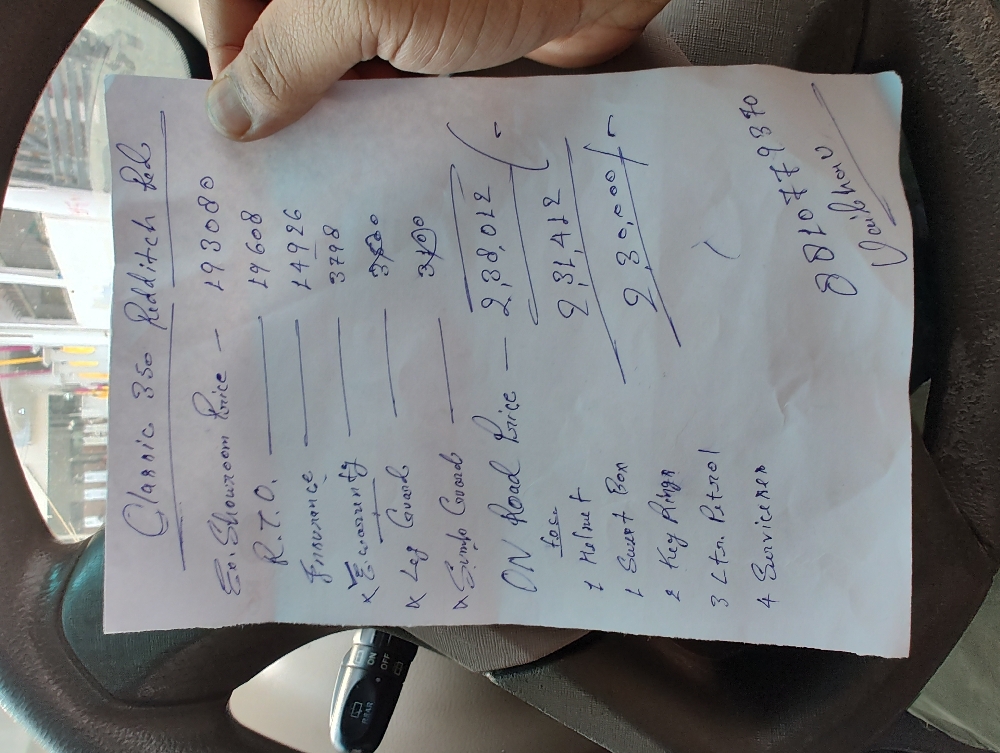 Classic 350 Redditch Red
Ex. Showroom Price - 193080
R.T.O. 19608
Insurance 14926
x E. warrenty 3798
x Leg Guard 3500
x Sump Guard 3100
ON Road Price - 2,38,012/-
f.o.c. 2,31,412
1 Helmet 2,30,000/-
1 Sweet Box
2 Key Rings
3 Ltr. Petrol
4 Servicess
8810779370
Vaibhav
REAR
ON
OFF